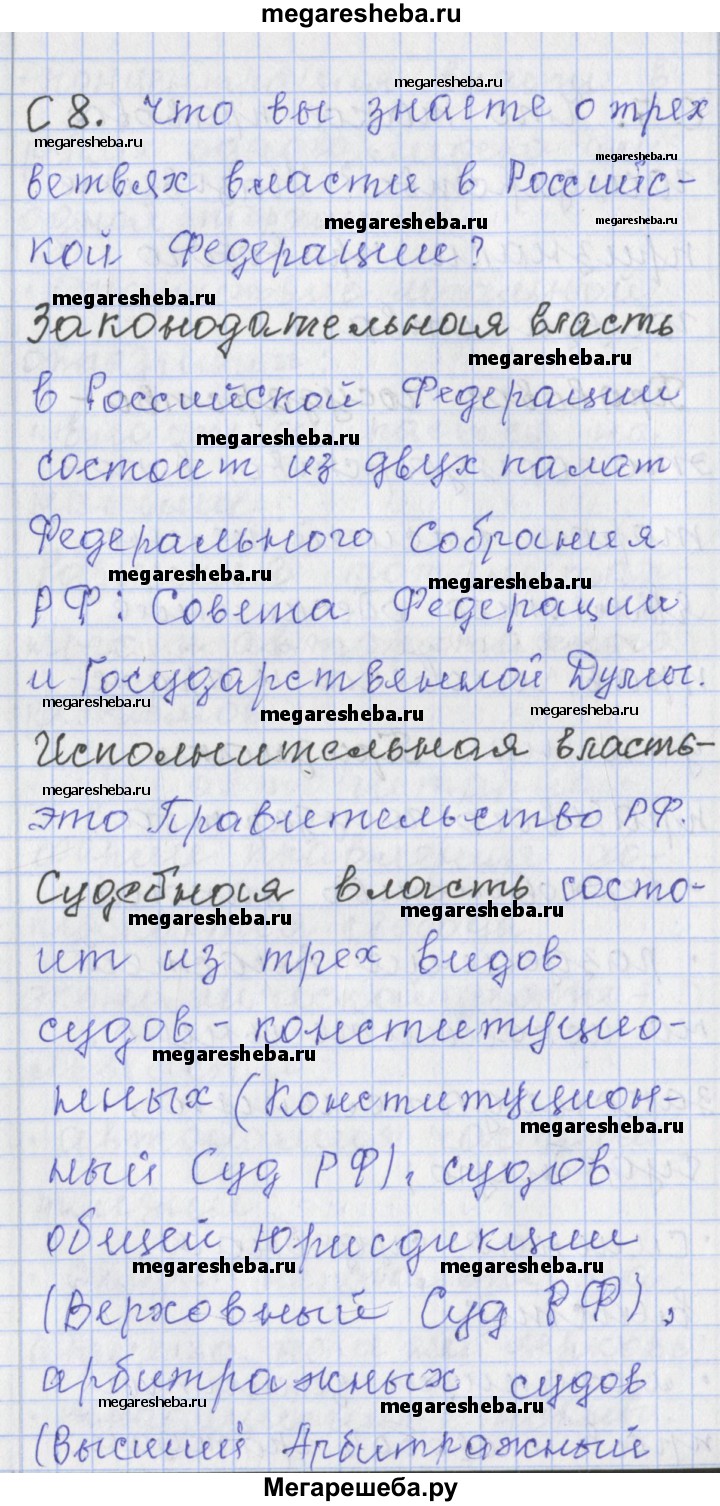 megaresheba.ru
megaresheba.ru
С 8. Что вы знаете о трех
megaresheba.ru
megaresheba.ru
ветвях власти в Российс-
megaresheba.ru
megaresheba.ru
кой Федерации?
megaresheba.ru
Законодательная власть
megaresheba.ru
в Российской Федерации
megaresheba.ru
состоит из двух палат
Федерального Собрания
megaresheba.ru
megaresheba.ru
РФ: Совета Федерации
и Государственной Думы.
megaresheba.ru
megaresheba.ru
megaresheba.ru
Исполнительная власть-
megaresheba.ru
это Правительство РФ.
Судебная власть состо-
megaresheba.ru
megaresheba.ru
ит из трех видов
судов - конституцио-
megaresheba.ru
нных (Конституцион-
megaresheba.ru
ный Суд РФ), судов
общей юрисдикции
megaresheba.ru
megaresheba.ru
(Верховный Суд РФ),
арбитражных судов
megaresheba.ru
megaresheba.ru
(Высший Арбитражный
Мегарешеба.ру